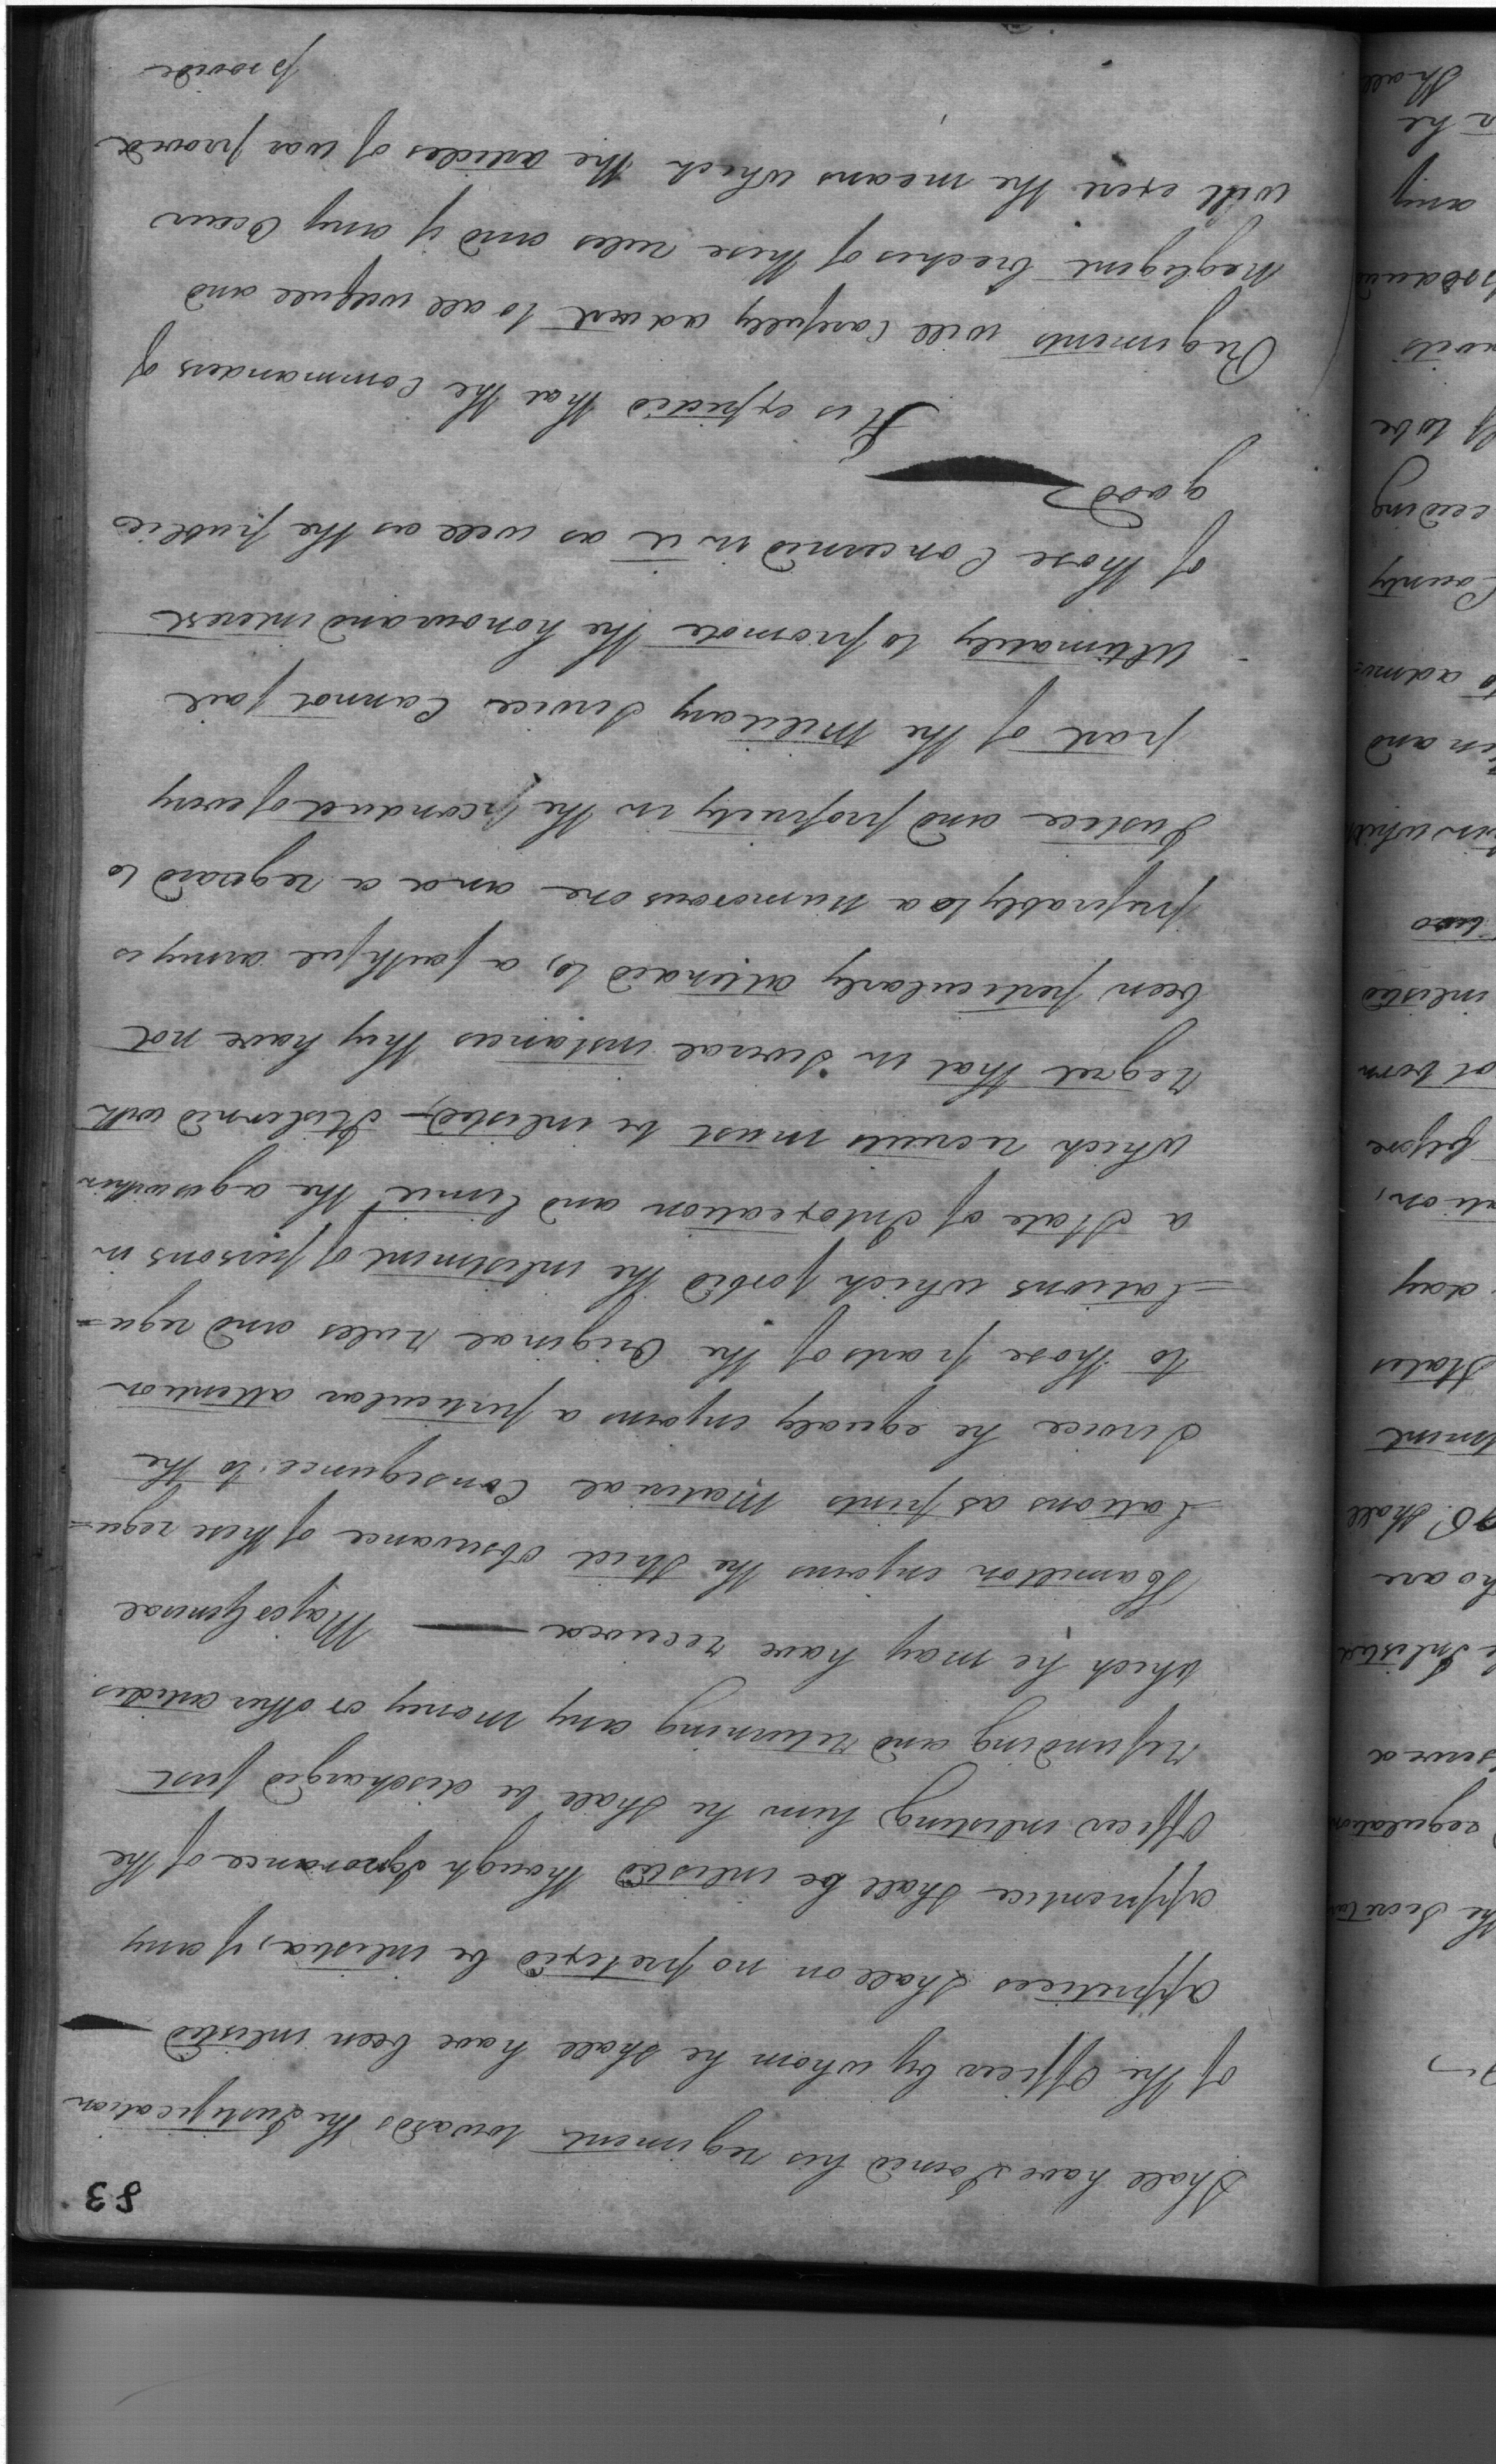 83
Shall have Joined his regiment towards the Justification
of the Officer by whom he Shall have been inlisted —
Appretices Shall on no pretexed be inlisted, if any
apprentice Shall be inlisted though Ignorance of the
Officer inlisting him he Shall be discharged first
refunding and returning any money or other articles
which he may have received — Major General
Hamilton enjoins the Strict observance of these regu=
=lations as pints Material Consequence to the
Service he equaly enjoins a perticular attention
to those parts of the Original rules and regu=
=lations which forbid the inlistment of persons in
a State of Intoxcation and limit the ages within
which recruits must be inlisted,
regret that in Several instances they have not
been perticularly attended to, a faithful army is
preferably to a numorous one and a reguard to
Justice and propriety in the conduct of every
part of the Military Service Cannot fail
Ultimately to promote the honour and interest
of those Concerned in it as well as the public
good
It is expected that the Commanders of
Regiments will Carefully advert to all willfull and
Negligent breaches of these rules and if any Occur
will exert the means which the articles of war provid
provide
Shall
he
any
to be
ceeding
County
to admi=
in and
in which
two
inlisted
at born
before
day
States
Shall
ho are
Inlisted
regulation
the Secretary